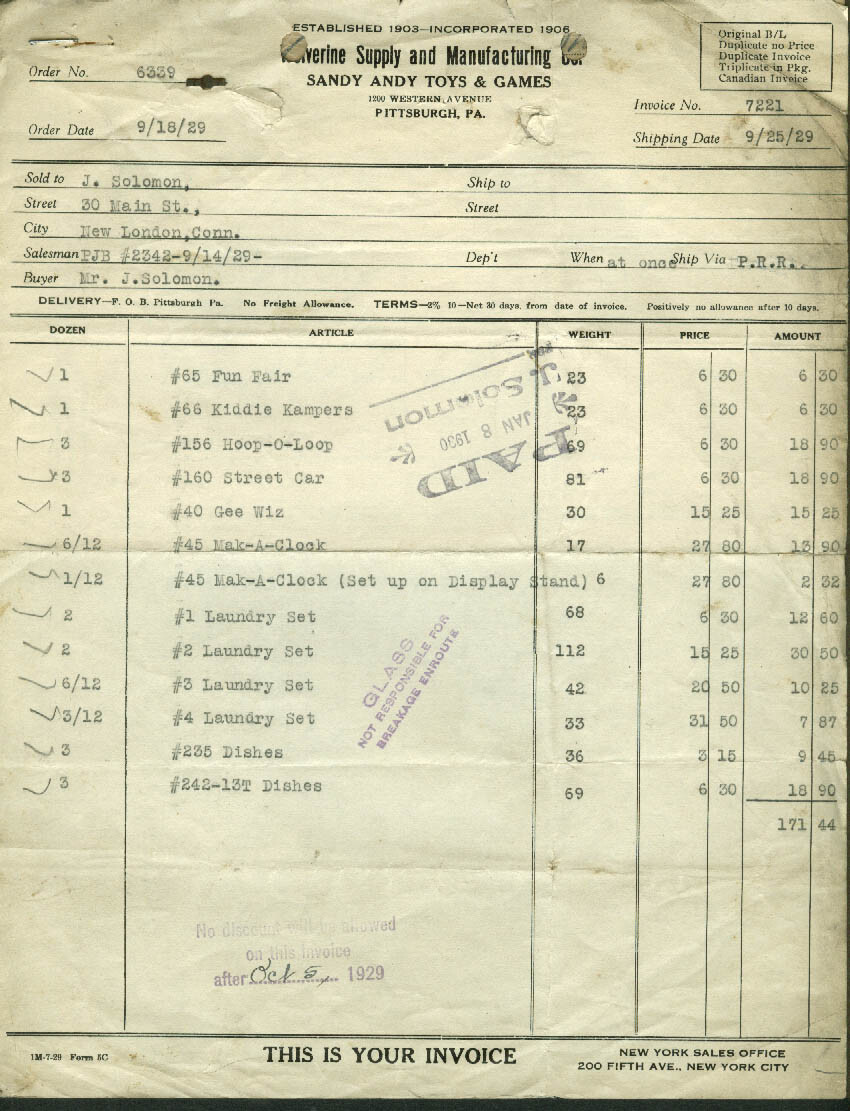 ESTABLISHED 1903—INCORPORATED 1906
Supply and Manufacturing Co.
SANDY ANDY TOYS & GAMES
1200 WESTERN AVENUE
PITTSBURGH, PA.
Original B/L
Duplicate no Price
Duplicate Invoice
Triplicate in Pkg.
Canadian Invoice
Order No. 6339
Invoice No. 7221
Order Date 9/18/29
Shipping Date 9/25/29
Sold to J. Solomon, Ship to
Street 30 Main St., Street
City New London,Conn.
Salesman PJB #2342-9/14/29- Dep't When at once Ship Via P.R.R..
Buyer Mr. J.Solomon.
DELIVERY—F. O. B. Pittsburgh Pa. No Freight Allowance. TERMS—2% 10—Net 30 days, from date of invoice. Positively no allowance after 10 days.
DOZEN ARTICLE WEIGHT PRICE AMOUNT
1 #65 Fun Fair 23 6 30 6 30
1 #66 Kiddie Kampers 23 6 30 6 30
3 #156 Hoop-O-Loop 69 6 30 18 90
3 #160 Street Car 81 6 30 18 90
1 #40 Gee Wiz 30 15 25 15 25
6/12 #45 Mak-A-Clock 17 27 80 13 90
1/12 #45 Mak-A-Clock (Set up on Display Stand) 6 27 80 2 32
2 #1 Laundry Set 68 6 30 12 60
2 #2 Laundry Set 112 15 25 30 50
6/12 #3 Laundry Set 42 20 50 10 25
3/12 #4 Laundry Set 33 31 50 7 87
3 #235 Dishes 36 3 15 9 45
3 #242-13T Dishes 69 6 30 18 90
171 44
PAID
JAN 8 1930
J. Solomon
GLASS
NOT RESPONSIBLE FOR
BREAKAGE ENROUTE
No discount will be allowed
on this invoice
after Oct 5, 1929
1M-7-29 Form 5C
THIS IS YOUR INVOICE
NEW YORK SALES OFFICE
200 FIFTH AVE., NEW YORK CITY